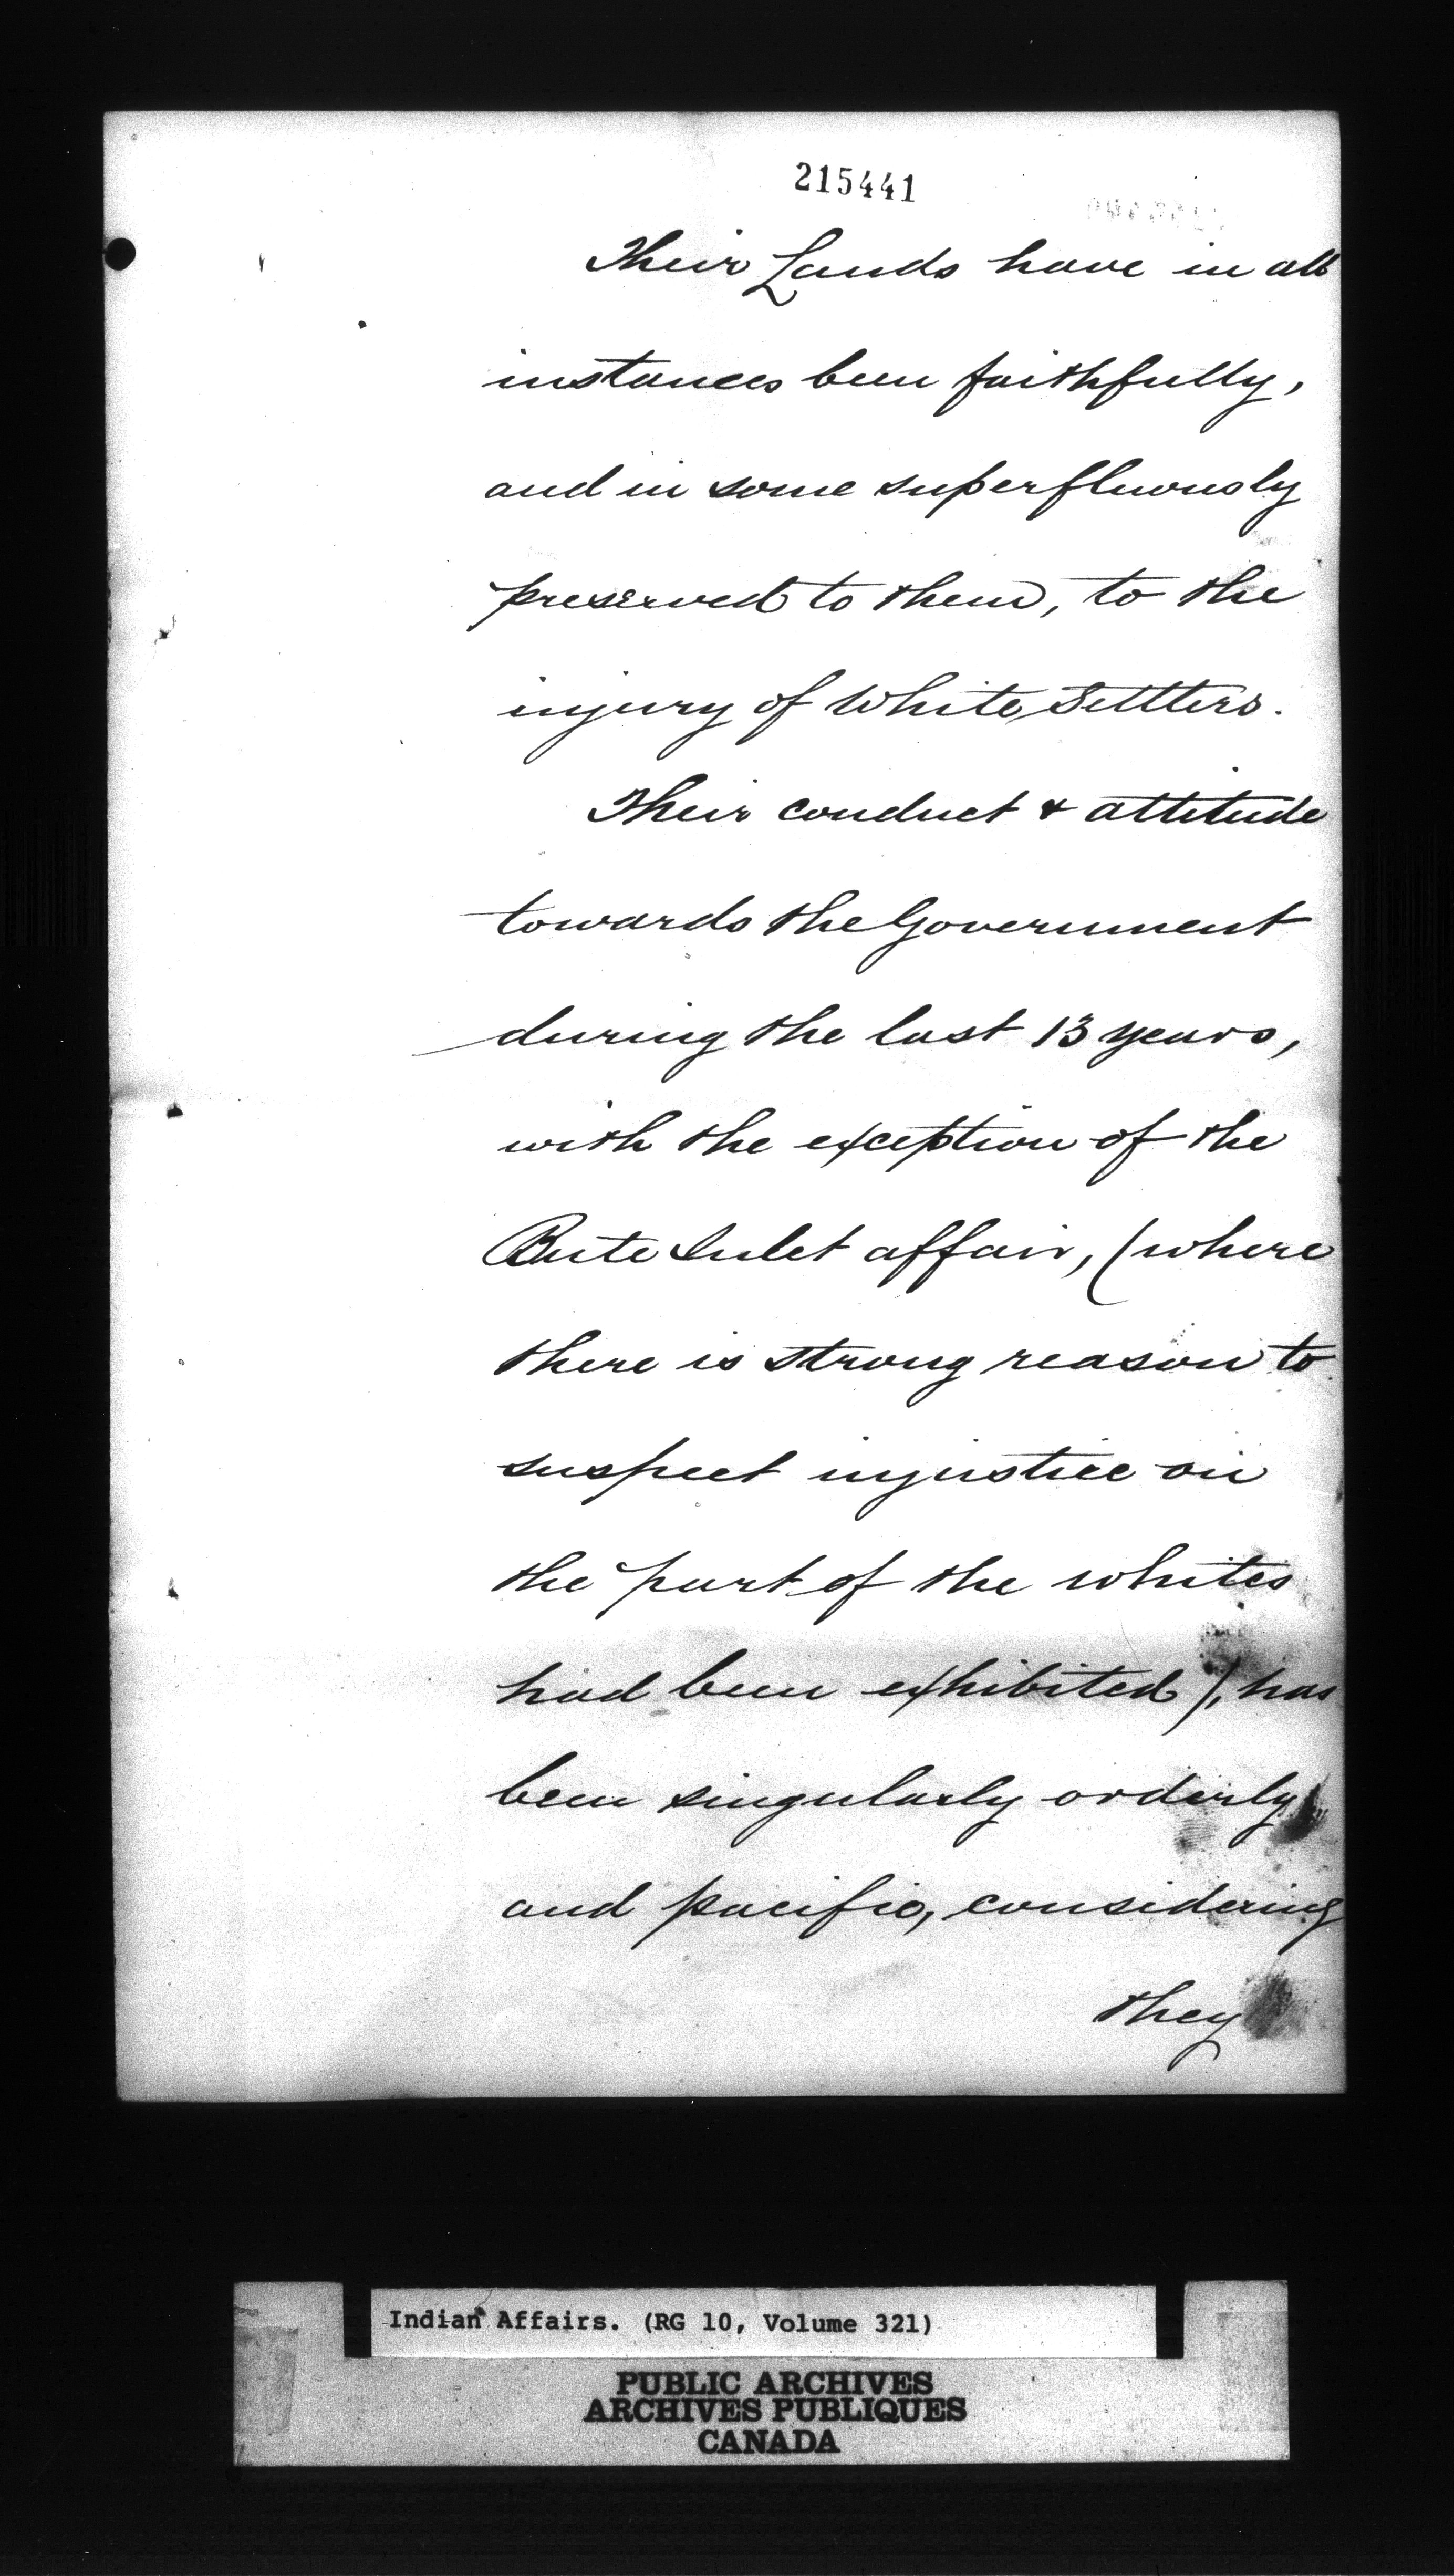 215441
Their Lands have in all
instances been faithfully,
and in some superfluously
preserved to them, to the
injury of White Settlers.
Their conduct & attitude
towards the Government
during the last 13 years,
with the exception of the
Bute Inlet affair, (where
there is strong reason to
suspect injustice on
the part of the whites
had been exhibited), has
been singularly orderly
and pacific, considering
they
Indian Affairs. (RG 10, Volume 321)
PUBLIC ARCHIVES
ARCHIVES PUBLIQUES
CANADA